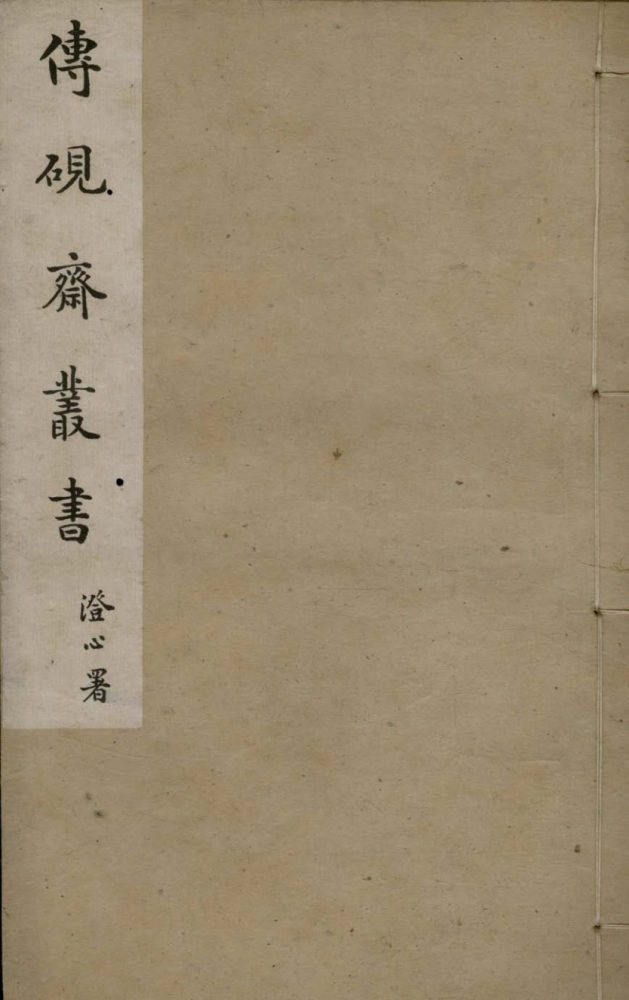 傳硯齋叢書
澄心署